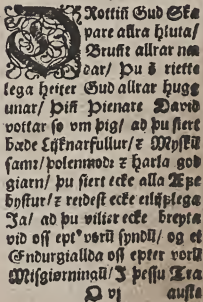 DRottiñ Gud Ska
pare allra hluta/
Bruñr allrar na
dar/ Þu ē riette
lega heiter Gud allrar hugg
unar/ Þiñ Þienare David
vottar so vm þig/ ad þu siert
bæde Lijknarfullur/ ꝛ Myskū
samr/ þolenmodꝛ ꝛ harla god
giarn/ þu siert ecke alla Æfe
bystur/ ꝛ reidest ecke eilijflega
Ja/ ad þu vilier ecke breyta
vid oss eptꝰ vorū syndū/ og ei
Endurgiallda oss epter vorū
Misgiørningū/ I þessu Tra
O vj auste